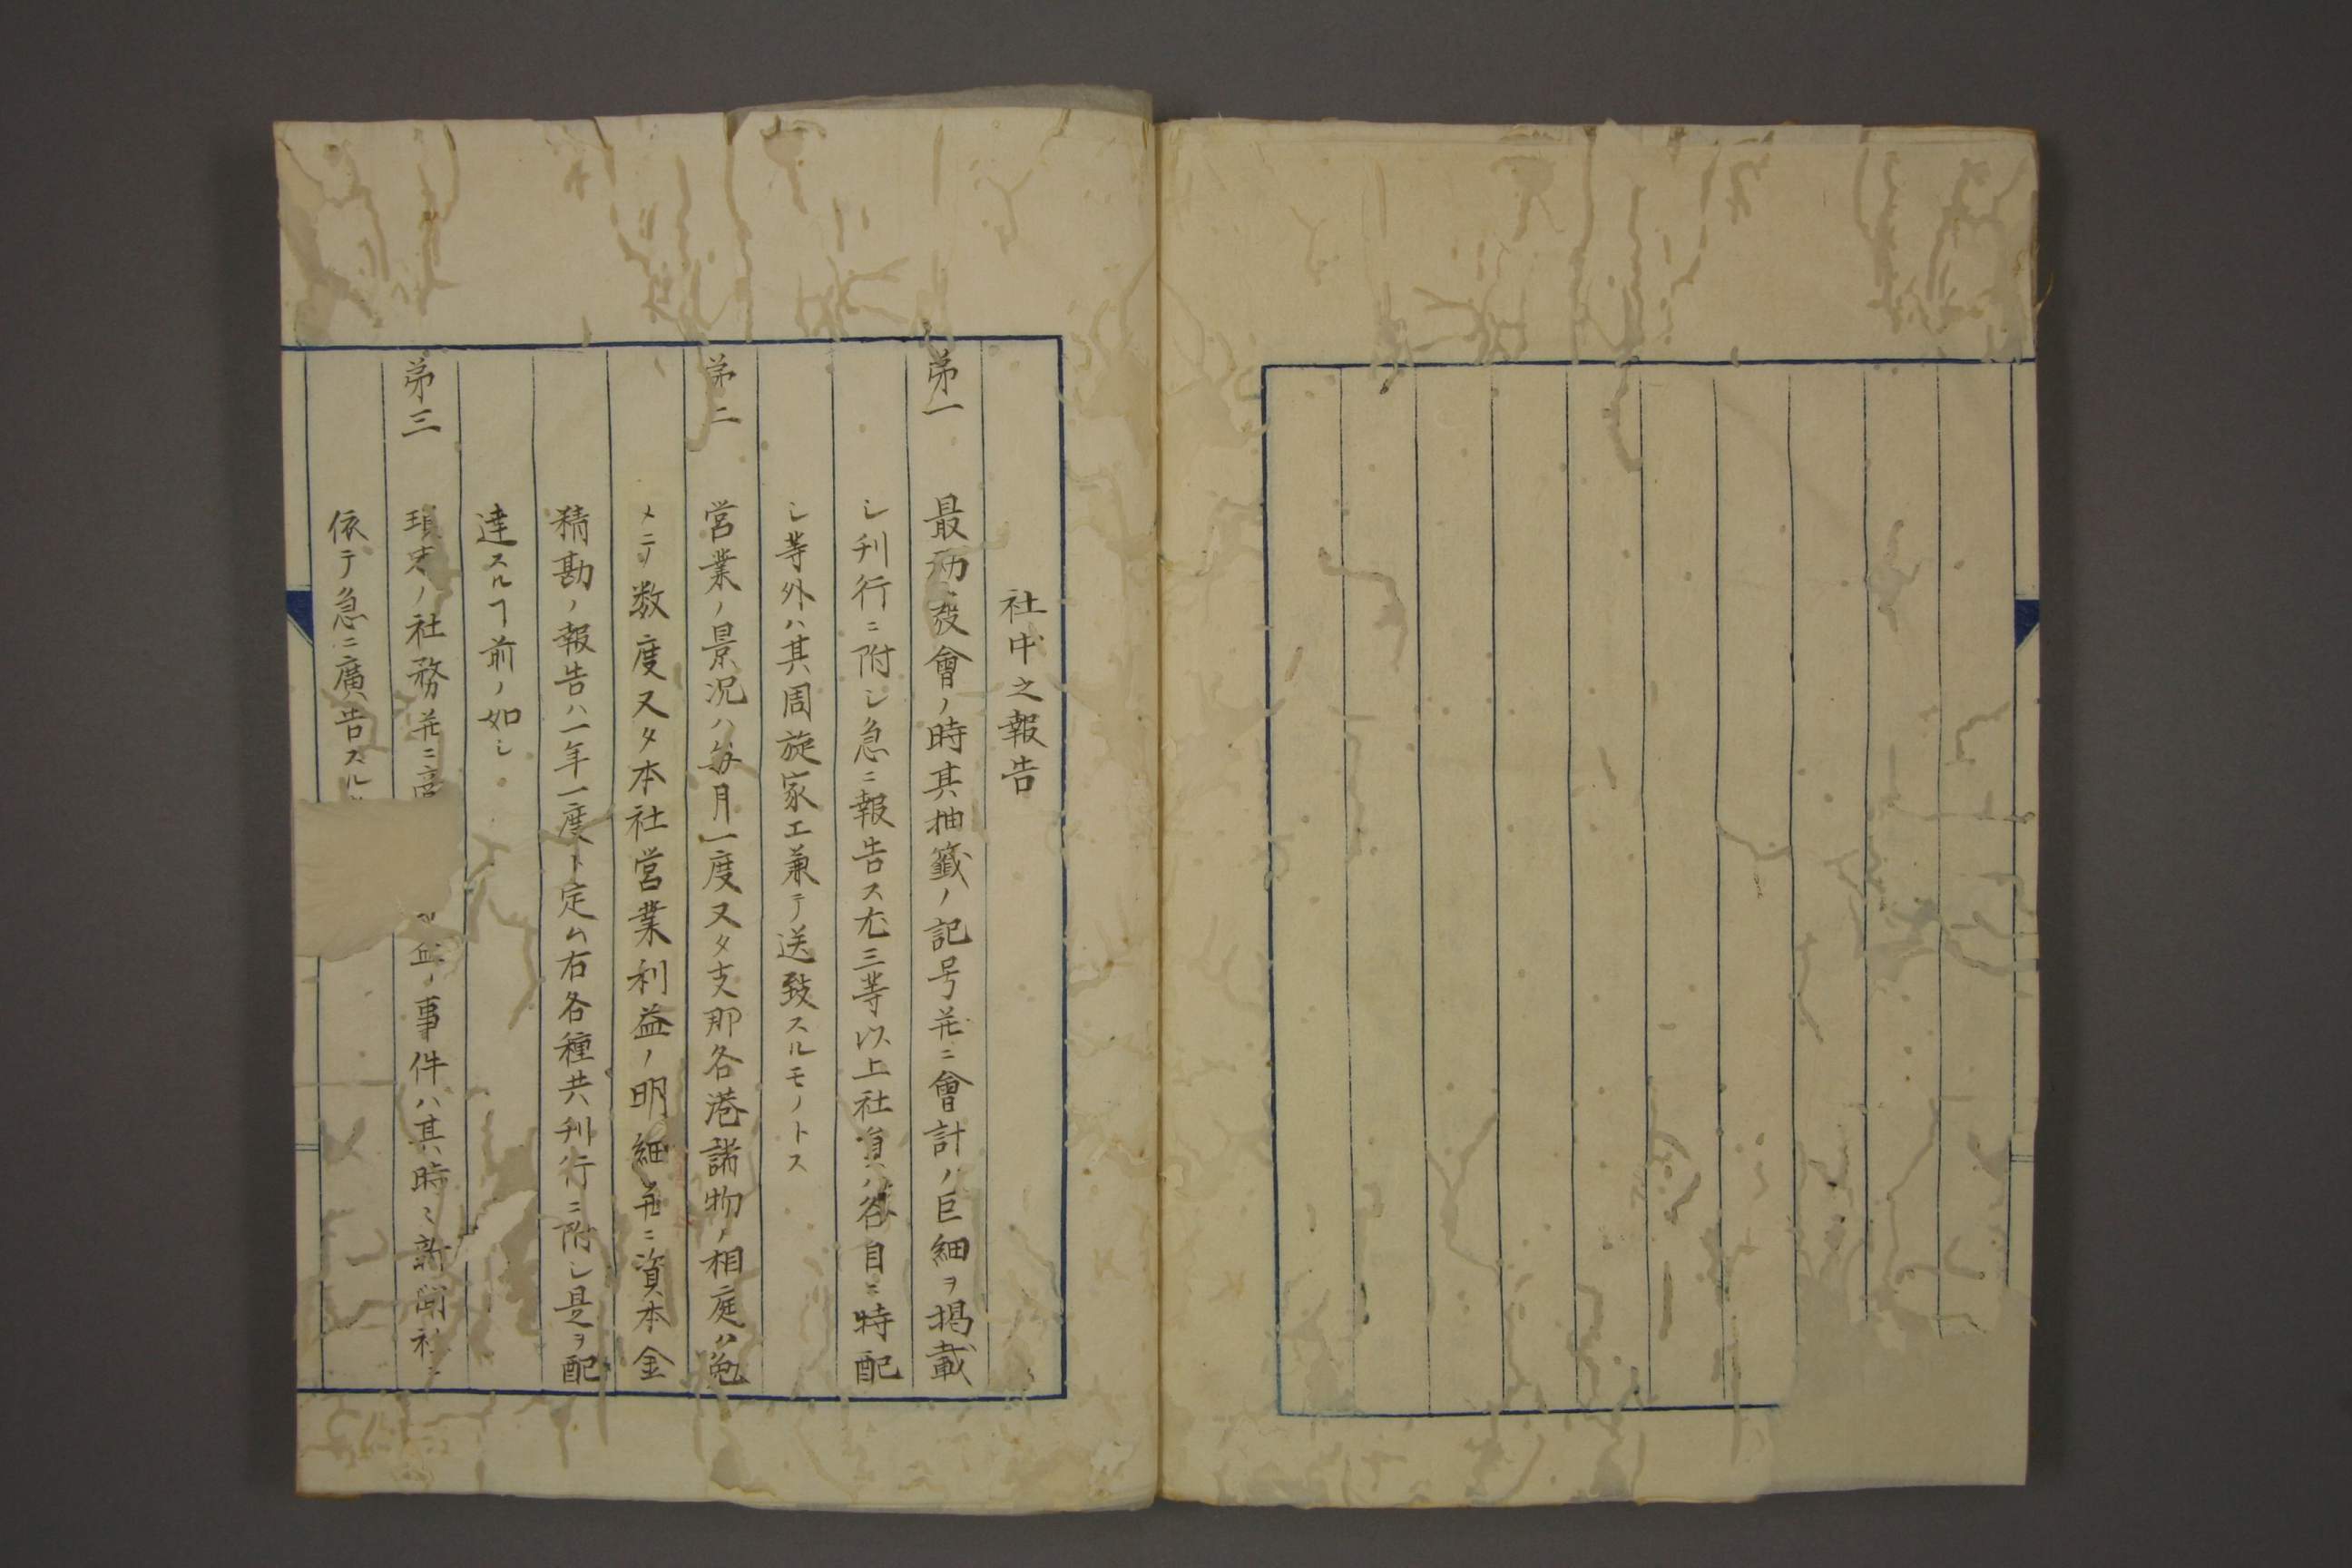 社中之報告
第一 最初發會ノ時其抽籤ノ記号并ニ會計ノ巨細ヲ掲載
シ刊行ニ附シ急ニ報告ス尤三等以上社員ハ各自ニ特配
シ等外ハ其周旋家エ兼テ送致スルモノトス
第二 営業ノ景況ハ毎月一度又タ支那各港諸物ノ相庭ハ兔
メテ数度又タ本社営業利益ノ明細并ニ資本金
精勘ノ報告ハ一年一度ト定ム右各種共刊行ニ附シ是ヲ配
達スルヿ前ノ如シ
第三 瑣末ノ社務并ニ 益ノ事件ハ其時々新聞社ニ
依テ急ニ廣告スル